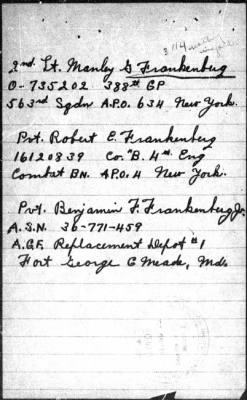 2nd. Lt. Manley G Frankenberg
O-735202 388th GP
563rd Sqdn A.P.O. 634 New York.
Pvt. Robert E. Frankenberg
16120839 Co. "B. 4th Eng
Combat BN. A.P.O. 4 New York.
Pvt. Benjamin F. Frankenberg Jr.
A.S.N. 36-771-459
A.G.F. Replacement Depot #1
Fort George G Meade, Md.